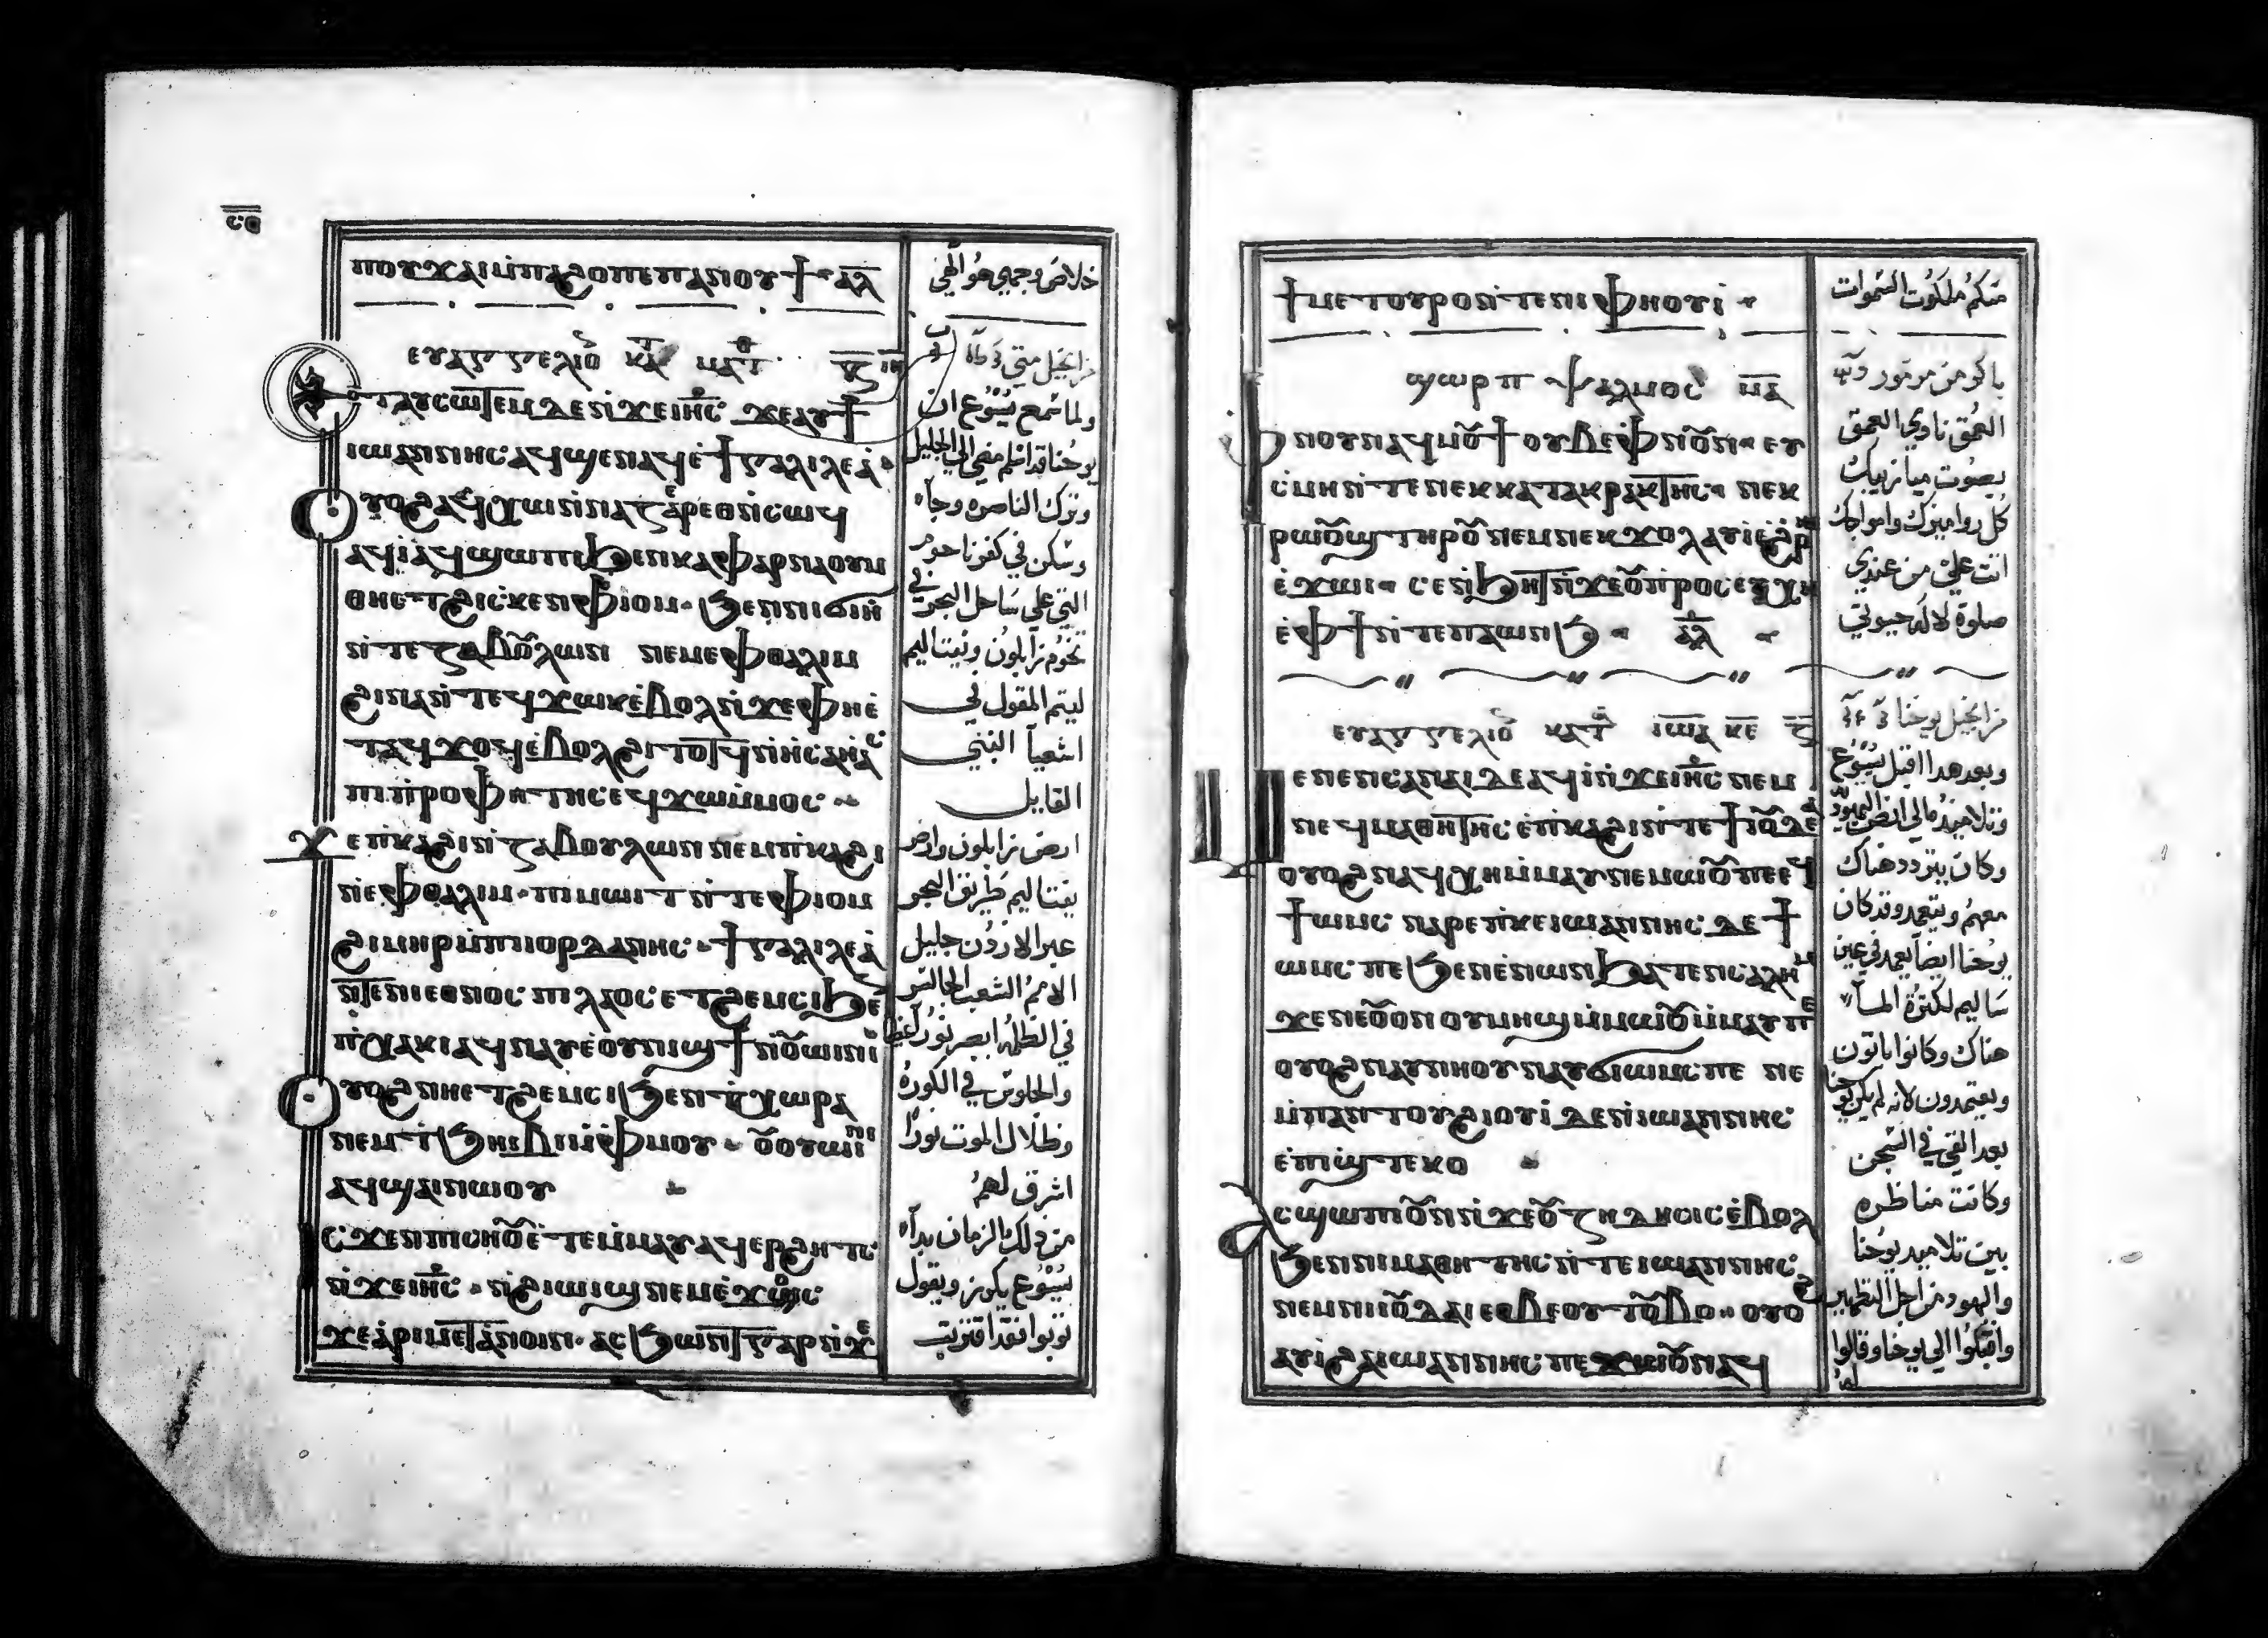 ⲥⲑ
ⲡⲟⲩϫⲁⲓⲙ̀ⲡⲁϩⲟⲡⲉⲡⲁⲛⲟⲩϯ ⲁ̅ⲗ̅
ⲉⲩⲁⲅⲅⲉⲗⲓⲟ ⲕⲁ ⲙⲁⲧ
ⲉⲧⲁϥⲥⲱⲧⲉⲙⲇⲉⲛ̀ϫⲉⲓⲏⲥ ϫⲉⲁⲩϯ
ⲓⲱⲁⲛⲛⲏⲥ ⲁϥϣⲉⲛⲁϥⲉ̀ϯⲅⲁⲗⲓⲗⲉⲁ̀
ⲟⲩⲟϩⲁϥⲭⲱⲛ̀ⲛⲁⲍⲁⲣⲉⲑⲛ̀ⲥⲱϥ
ⲁϥⲓ̀ⲁϥϣⲱⲡⲓϧⲉⲛⲕⲁⲫⲁⲣⲛⲁⲟⲩⲙ
ⲑⲏⲉⲧϩⲓⲥⲕⲉⲛⲫⲓⲟⲙ ϧⲉⲛⲛⲓϭⲓⲏ
ⲛ̀ⲧⲉⲍⲁⲃⲟⲩⲗⲱⲛ ⲛⲉⲙⲉⲫⲑⲁⲗⲓⲙ
ϩⲓⲛⲁⲛ̀ⲧⲉϥϫⲱⲕⲉ̀ⲃⲟⲗⲛ̀ϫⲉⲫⲏⲉ̀
ⲧⲁϥϫⲟϥⲉ̀ⲃⲟⲗϩⲓⲧⲟⲧϥⲛ̀ⲏⲥⲁⲏⲁⲥ
ⲡⲓⲡ̀ⲣⲟⲫⲏⲧⲏⲥⲉϥϫⲱⲙ̀ⲙⲟⲥ
ϫⲉⲡ̀ⲕⲁϩⲓⲛ̀ⲍⲁⲃⲟⲩⲗⲱⲛⲛⲉⲙⲡ̀ⲕⲁϩⲓ
ⲛⲉⲫⲑⲁⲗⲓⲙ ⲡⲓⲙⲱⲓⲧ ⲛ̀ⲧⲉⲫⲓⲟⲙ
ϩⲓⲙⲏⲣⲙ̀ⲡⲓⲓⲟⲣⲇⲁⲛⲏⲥ ϯⲅⲁⲗⲓⲗⲉⲁ̀
ⲛ̀ⲧⲉⲛⲓⲉⲑⲛⲟⲥ ⲡⲓⲗⲁⲟⲥⲉⲧϩⲉⲙⲥⲓϧⲉ
ⲡ̀ⲭⲁⲕⲓⲁϥⲛⲁⲩⲉ̀ⲟⲩⲛⲓϣϯⲛ̀ⲟⲩⲱⲓⲛⲓ
ⲟⲩⲟϩⲛⲏⲉⲧϩⲉⲙⲥⲓϧⲉⲛⲧ̀ⲭⲱⲣⲁ
ⲛⲉⲙⲧ̀ϧⲏⲓⲃⲓⲙ̀ⲫⲙⲟⲩ ⲟⲩⲟⲩⲱⲓⲛⲓ
ⲁϥϣⲁⲓⲛⲱⲟⲩ
ⲓⲥϫⲉⲛⲡⲓⲥⲏⲟⲩⲉ̀ⲧⲉⲙ̀ⲙⲁⲩⲁϥⲉⲣϩⲏⲧⲥ
ⲛ̀ϫⲉⲓⲏⲥ ⲛ̀ϩⲓⲱⲓϣⲛⲉⲙⲉ̀ϫⲟⲥ
ϫⲉⲁ̀ⲣⲓⲙⲉⲧⲁ̀ⲛⲟⲓⲛ ⲁⲥϧⲱⲛⲧⲅⲁⲣⲛ̀ϫⲉ
خلاص وجهي هو الهي
من انجيل متي
ولما سمع يسوع ان
يوحنا قد اسلم مضي الي الجليل
وترك الناصره وجآء
وسكن في كفرناحوم
التي علي ساحل البحر في
تخوم زابلون ونفتاليم
ليتم المقول في
اشعيآ النبي
القايل
ارض زابلون وارض
نفتاليم طريق البحر
عبر الاردن جليل
الامم الشعب الجالس
في الظلمه ابصر نورًا عظيما
والجلوس في الكورة
وظلال الموت نورًا
اشرق لهم
من ذلك الزمان بدآء
يسوع يكرز ويقول
توبوا فقد اقتربت
ϯⲙⲉⲧⲟⲩⲣⲟⲛ̀ⲧⲉⲛⲓⲫⲏⲟⲩⲓ̀
ϣⲱⲣⲡ ⲯⲁⲗⲙⲟⲥ ⲙ̅ⲁ̅
ⲫⲛⲟⲩⲛⲁϥⲙⲟⲩϯⲟⲩⲃⲉⲫⲛⲟⲩⲛ ⲉⲩ
ⲥ̀ⲙⲏⲛ̀ⲧⲉⲛⲉⲕⲕⲁⲧⲁⲕⲣⲁⲕⲧⲏⲥ ⲛⲉⲕ
ⲣⲱⲟⲩϣⲧⲏⲣⲟⲩⲛⲉⲙⲛⲉⲕϫⲟⲗⲁⲩⲓⲉ̀ϩⲣ
ⲉ̀ϫⲱⲓ ⲥⲉⲛ̀ϧⲏⲧⲛ̀ϫⲉⲟⲩⲡ̀ⲣⲟⲥⲉⲩⲭⲏ
ⲉ̀ⲫϯⲛ̀ⲧⲉⲡⲁⲱⲛϧ ⲁ̅ⲗ̅
ⲉⲩⲁⲅⲅⲉⲗⲓⲟ ⲕⲁⲧ ⲓⲱⲁ ⲕⲉ
ⲙⲉⲛⲉⲛⲥⲁⲛⲁⲓⲇⲉⲁϥⲓ̀ⲛ̀ϫⲉⲓⲏⲥ ⲛⲉⲙ
ⲛⲉϥⲙⲁⲑⲏⲧⲏⲥ ⲉ̀ⲡ̀ⲕⲁϩⲓⲛ̀ⲧⲉϯⲓⲟⲩⲇⲉⲁ
ⲟⲩⲟϩⲛⲁϥⲭⲏⲙ̀ⲙⲁⲩⲛⲉⲙⲱⲟⲩⲡⲉⲉϥ
ϯⲱⲙⲥ ⲛⲁⲣⲉⲡ̀ⲕⲉⲓⲱⲁⲛⲛⲏⲥ ⲇⲉ ϯ
ⲱⲙⲥ ⲡⲉϧⲉⲛⲉ̀ⲛⲱⲛϧⲁⲧⲉⲛⲥⲁⲗⲏⲙ
ϫⲉⲛⲉⲟⲩⲟⲛⲟⲩⲙⲏϣⲙ̀ⲙⲱⲟⲩⲙ̀ⲙⲁⲩⲡⲉ
ⲟⲩⲟϩⲛⲁⲩⲛⲏⲟⲩⲛⲁⲩϭⲓⲱⲙⲥ ⲡⲉ ⲛⲉ
ⲙ̀ⲡⲁⲛⲧⲟⲩϩⲓⲟⲩⲓ̀ⲇⲉⲛ̀ⲓⲱⲁⲛⲛⲏⲥ
ⲉ̀ⲡⲓϣⲧⲉⲕⲟ
ⲁⲥϣⲱⲡⲓⲟⲩⲛⲛ̀ϫⲉⲟⲩⲍⲏⲧⲏⲥⲓⲥⲉ̀ⲃⲟⲗ
ϧⲉⲛⲛⲓⲙⲁⲑⲏⲧⲏⲥ ⲛ̀ⲧⲉⲓⲱⲁⲛⲛⲏⲥ
ⲛⲉⲙⲛⲓⲓⲟⲩⲇⲁⲓⲉⲑⲃⲉⲟⲩⲧⲟⲩⲃⲟ ⲟⲩⲟϩ
ⲁⲩⲓ̀ϩⲁⲓⲱⲁⲛⲛⲏⲥ ⲡⲉϫⲱⲟⲩⲛⲁϥ
منكم ملكوت السموات
باكر من مزمور
العمق نادي العمق
بصوت ميازيبك
كل روامزك وامواجك
انت علي من عندي
صلوة لالٰه حيوتي
من انجيل يوحنا
وبعد هدا اقبل يسوع
وتلاميذه الي ارض اليهوديه
وكان يتردد هناك
معهم ويتعمد وقد كان
يوحنا ايضًا يعمد في عين
ساليم لكثرة المآء
هناك وكانوا ياتون
ويعتمدون لانه لم يكن يوحنا
بعد القي في السجن
وكانت مناظره
بين تلاميد يوحنا
واليهود من اجل التطهير
واقبلوا الي يوحنا وقالوا
له